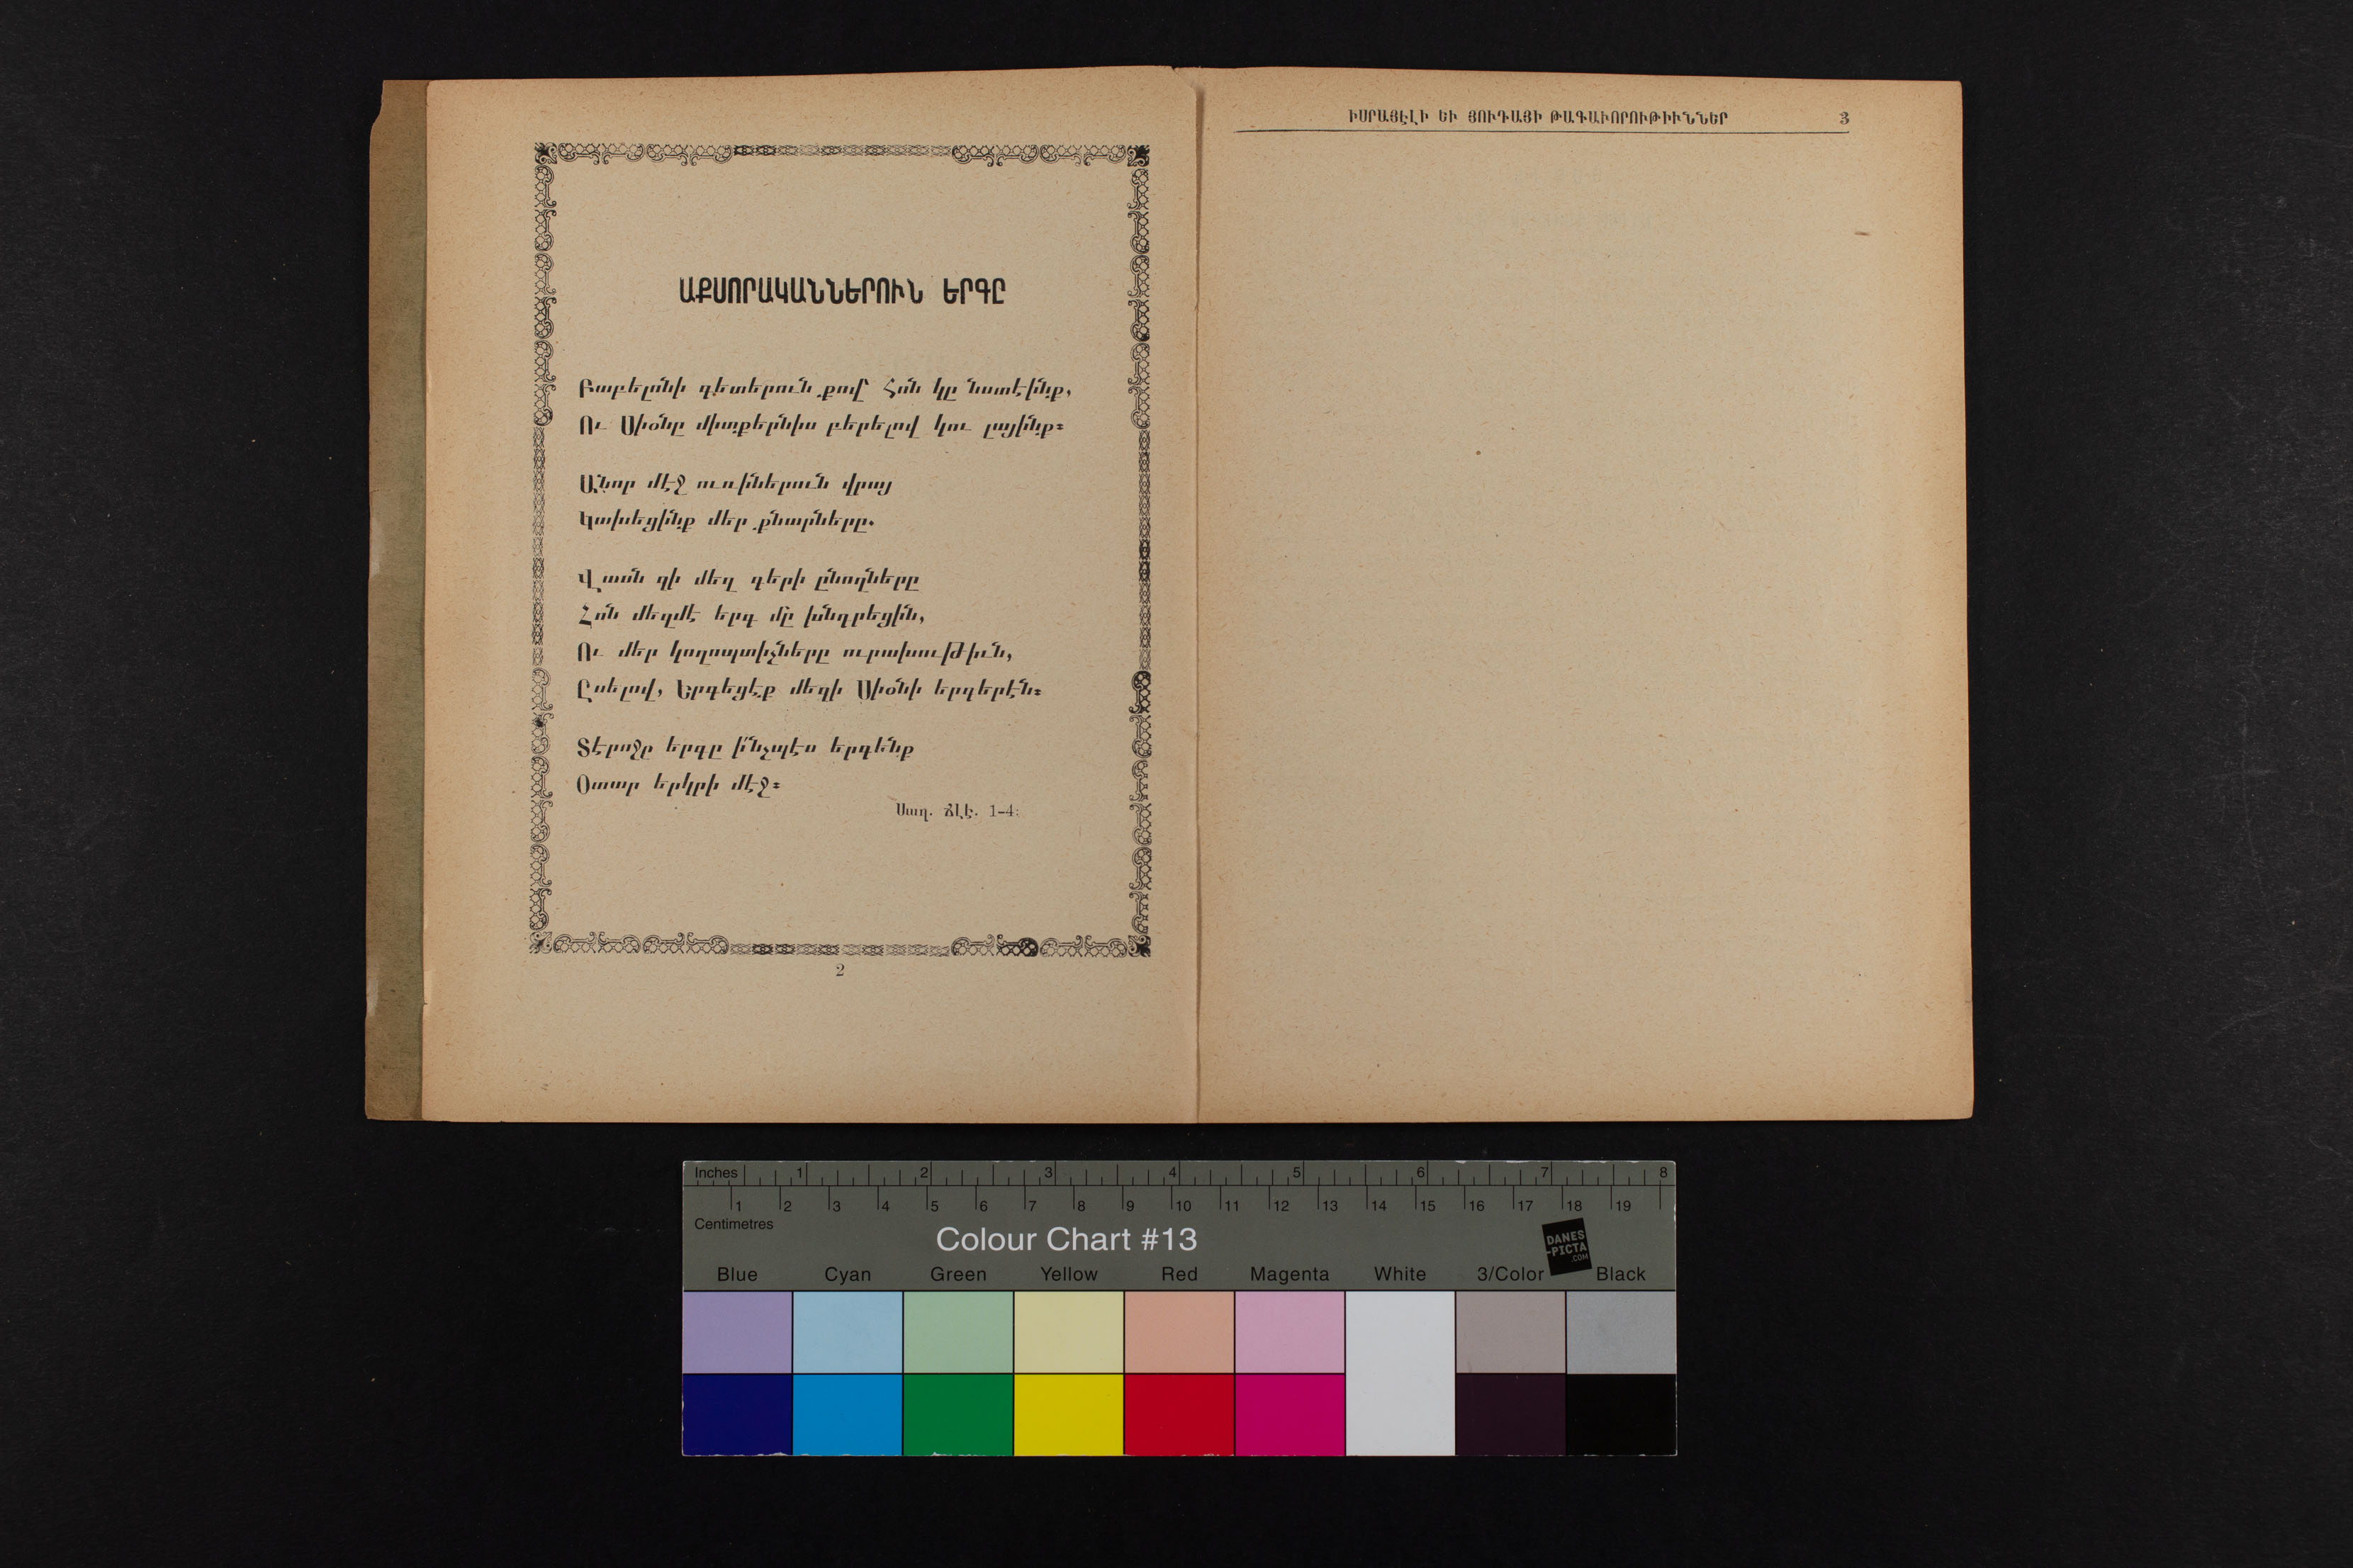 ԱՔՍՈՐԱԿԱՆՆԵՐՈՒՆ ԵՐԳԸ
Բաբելոնի գետերուն քով՝ Հոն կը նստէինք,
Ու Սիօնը միտքերնիս բերելով կու լայինք։
Անոր մէջ ուռիներուն վրայ
Կախեցինք մեր քնարները.
Վասն զի մեզ գերի ընողները
Հոն մեզմէ երգ մը խնդրեցին,
Ու մեր կողոպտիչները ուրախութիւն,
Ըսելով, Երգեցէք մեզի Սիօնի երգերէն։
Տէրոջը երգը ի՞նչպէս երգենք
Օտար երկրի մէջ։
Սաղ. ՃԼԷ. 1-4։
2
ԻՍՐԱՅԷԼԻ ԵՒ ՅՈՒԴԱՅԻ ԹԱԳԱՒՈՐՈՒԹԻՒՆՆԵՐ 3
Inches 1 2 3 4 5 6 7 8
1 2 3 4 5 6 7 8 9 10 11 12 13 14 15 16 17 18 19
Centimetres
Colour Chart #13
DANES
-PICTA
.COM
Blue Cyan Green Yellow Red Magenta White 3/Color Black